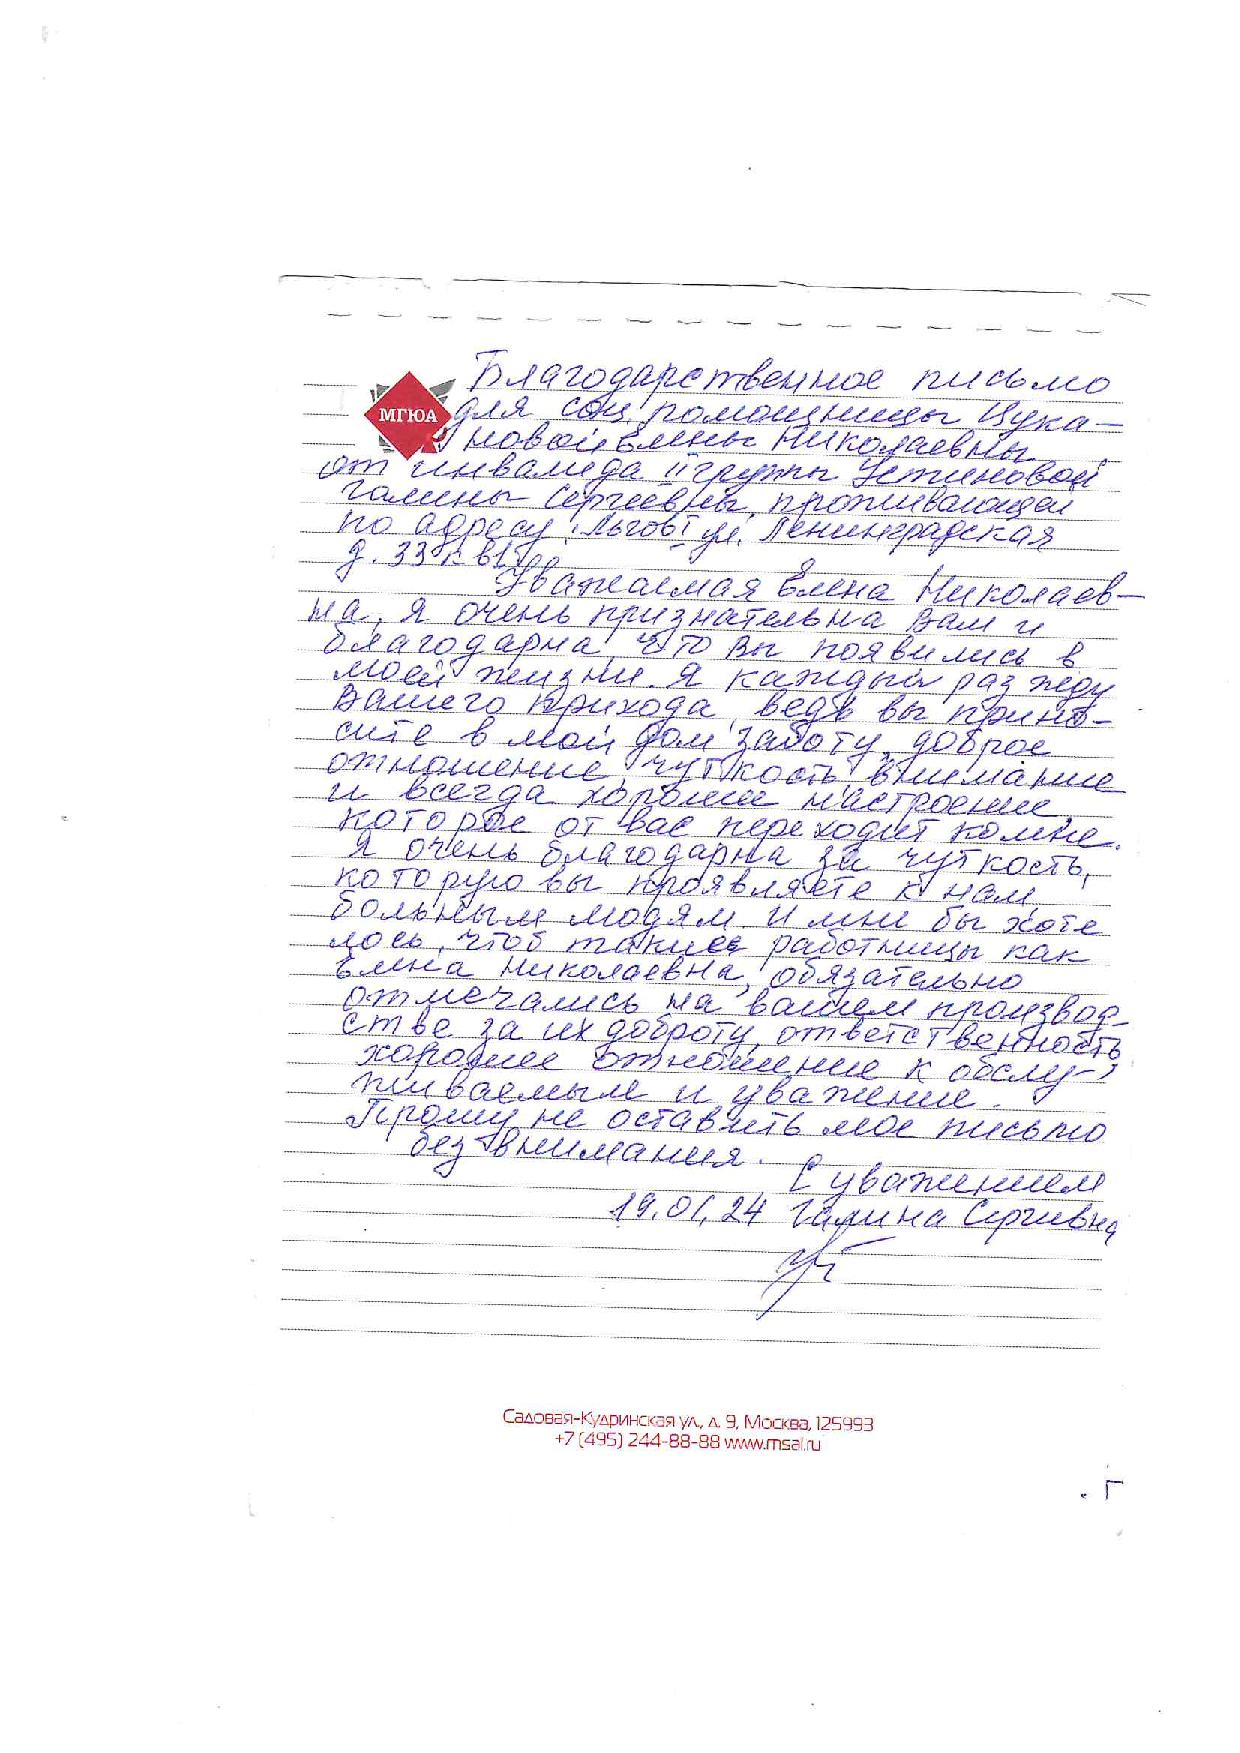 Благодарственное письмо
МГЮА
для соц. помощницы Цука-
новой Елены Николаевны
от инвалида II группы Устиновой
Галины Сергеевны, проживающей
по адресу: г. Льгов ул. Ленинградская
д. 33 кв
Уважаемая Елена Николаев-
на, я очень признательна Вам и
благодарна, что Вы появились в
моей жизни. Я каждый раз жду
Вашего прихода, ведь вы прино-
сите в мой дом заботу, доброе
отношение, чуткость внимание
и всегда хорошее настроение,
которое от вас переходит ко мне.
Я очень благодарна за чуткость,
которую вы проявляете к нам
больным людям. И мне бы хоте
лось, чтоб такие работницы как
Елена Николаевна, обязательно
отмечались на вашем производ-
стве за их доброту, ответственность
хорошее отношение к обслу-
живаемым и уважение.
Прошу не оставить мое письмо
без внимания.
С уважением
19.01.24 Галина Сергиевна
Садовая-Кудринская ул., д. 9, Москва, 125993
+7 (495) 244-88-88 www.msal.ru